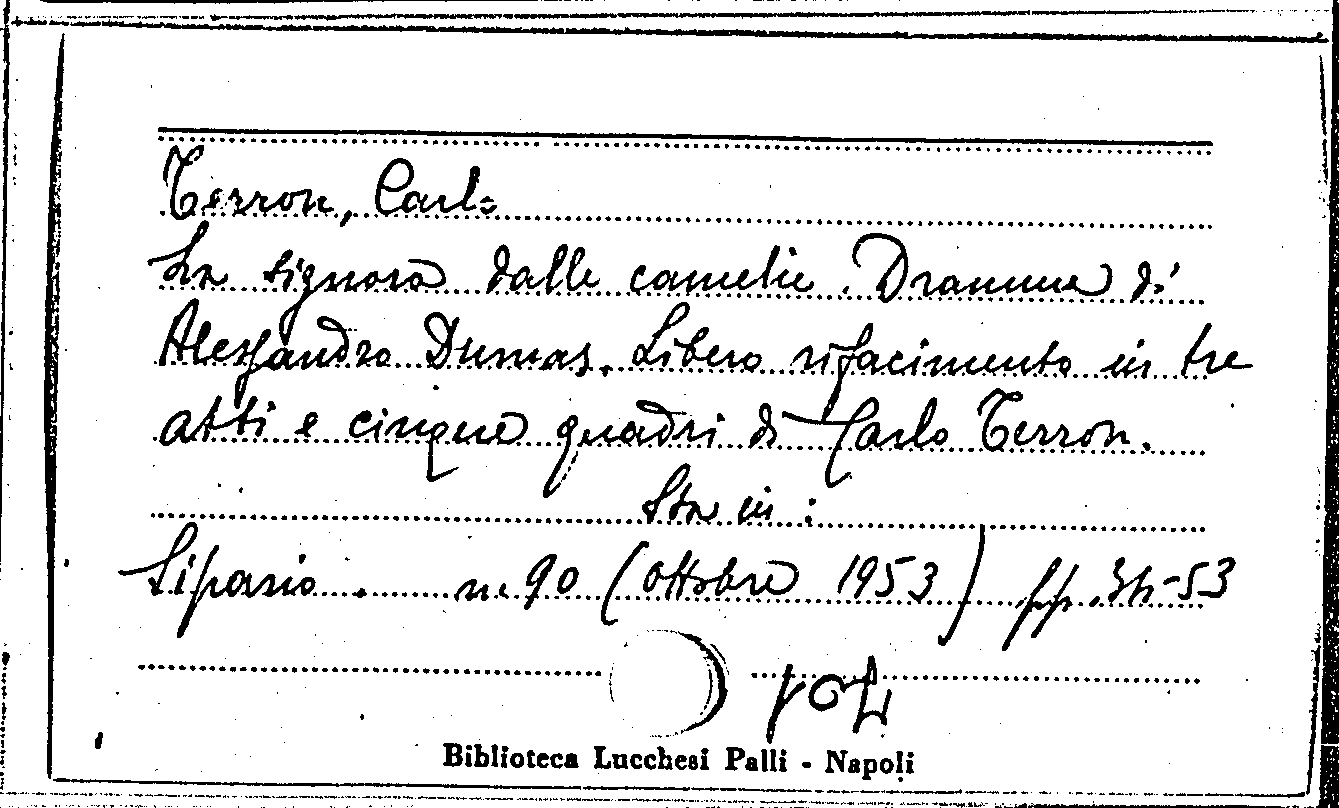 Terron, Carlo
La signora dalle camelie. Dramma di
Alessandro Dumas. Libero rifacimento in tre
atti e cinque quadri di Carlo Terron.
Sta in:
Sipario. n. 90 (ottobre 1953) pp. 34-53
Biblioteca Lucchesi Palli - Napoli